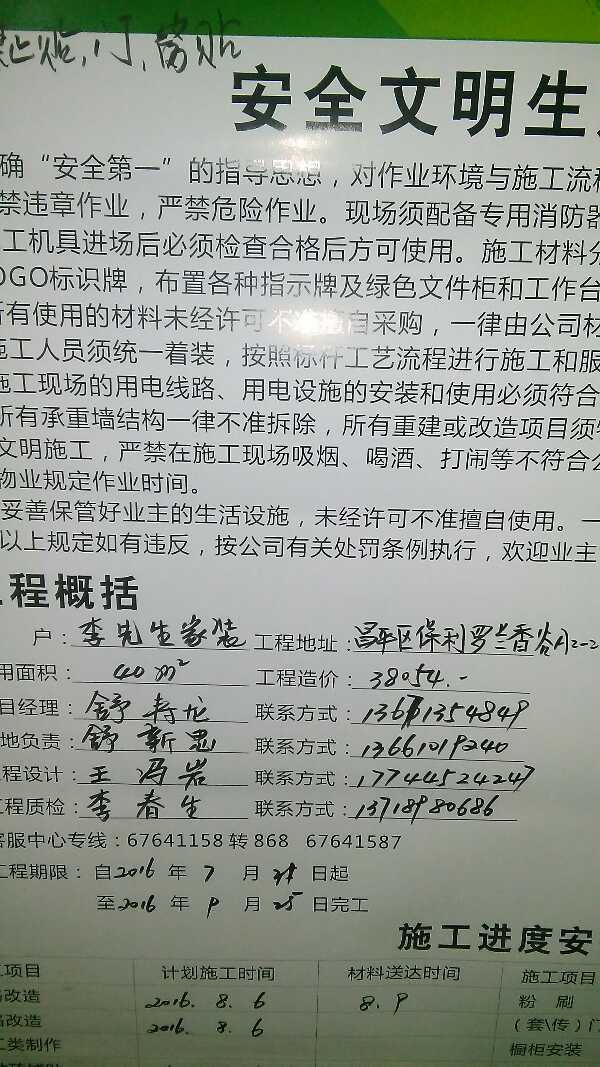 贴,门,窗贴
安全文明生
确“安全第一”的指导思想，对作业环境与施工流程
禁违章作业，严禁危险作业。现场须配备专用消防器
工机具进场后必须检查合格后方可使用。施工材料分
OGO标识牌，布置各种指示牌及绿色文件柜和工作台
所有使用的材料未经许可不准擅自采购，一律由公司材
施工人员须统一着装，按照标杆工艺流程进行施工和服
施工现场的用电线路、用电设施的安装和使用必须符合
所有承重墙结构一律不准拆除，所有重建或改造项目须
文明施工，严禁在施工现场吸烟、喝酒、打闹等不符合公
物业规定作业时间。
妥善保管好业主的生活设施，未经许可不准擅自使用。一
以上规定如有违反，按公司有关处罚条例执行，欢迎业主
工程概括
户：李先生家装 工程地址：昌平区保利罗兰香谷A12-2
用面积：40m² 工程造价：38054.-
目经理：舒寿龙 联系方式：13671354849
地负责：舒新思 联系方式：13661019240
工程设计：王冯岩 联系方式：17744524247
工程质检：李春生 联系方式：13718980686
客服中心专线：67641158 转 868 67641587
工程期限：自2016 年 7 月 日起
至2016 年 9 月 25 日完工
施工进度安
工项目 计划施工时间 材料送达时间 施工项目
改造 2016. 8. 6 8. 9 粉 刷
改造 2016. 8. 6 （套\传）门
工类制作 橱柜安装